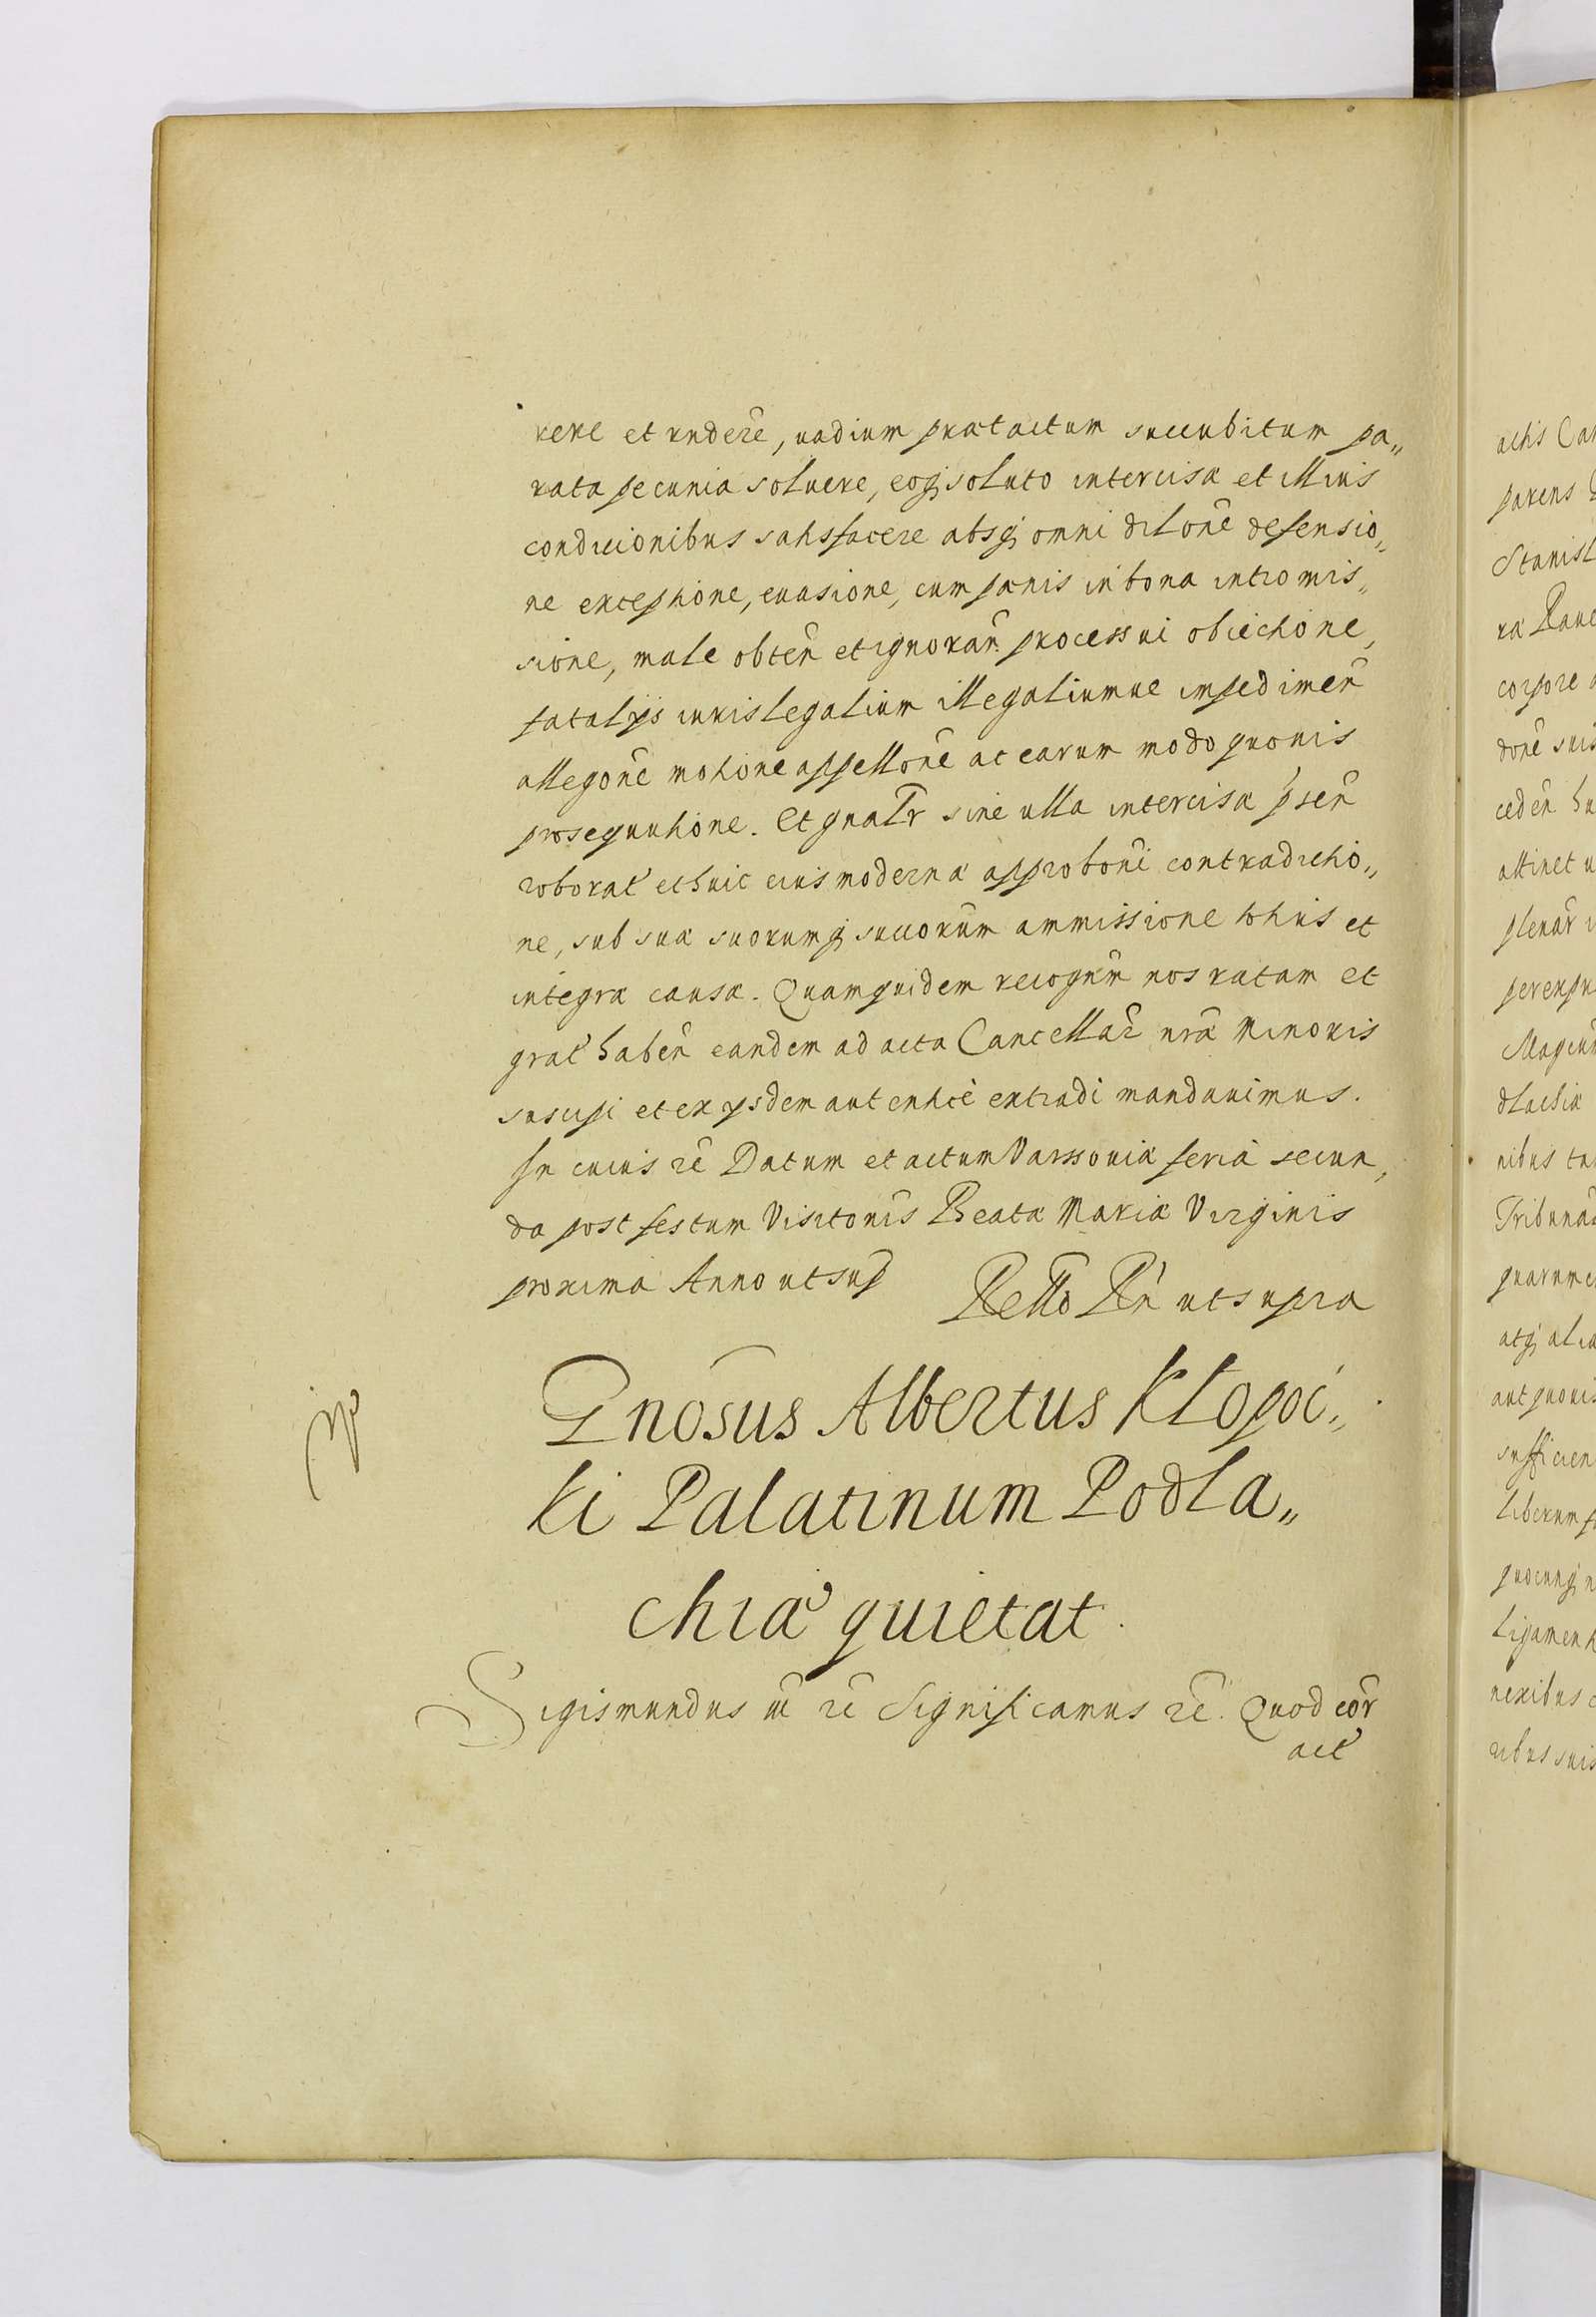 rere et rndere, uadium prætactum succubitum pa„
rata pecunia soluere, eoq; soluto intercisæ et illius
condicionibus satisfacere absq; omni dilone defensio„
ne exceptione, euasione, cum pænis in bona intromis„
sione, male obten et ignoran processui obiectione,
fatalijs iuris legalium illegaliumue impedimen
allegone motione appellone ac earum modo quouis
prosequutione. Et gnalr sine ulla intercisæ psen
roborat et huic eius modernæ approboni contradictio„
ne, sub suæ suorumq; succorum ammissione totius et
integræ causæ. Quam quidem recognem nos ratam et
grat haben eandem ad acta Cancellar nræ Minoris
suscipi et ex ysdem autentice extradi mandauimus.
In cuius rē Datum et actum Varssouiæ feria secun,
da post festum Visitonis Beatæ Mariæ Virginis
proxima Anno ut sup
Rello Rn ut supra
Gnosus Albertus Klopoc„
ki Palatinum Podla„
chiæ quietat.
Sigismundus III rē Significamus rē. Quod cor
act
actis Can
parens
Stanisl
ræ Raue
corpore
done suis
ceden hu
attinet
plenar
Magcum
dlachiæ
nibus
Tribunal
quarum
atq; alia
aut quouis
sufficien
liberum
quocunq;
ligament
nexibus
ribus suis